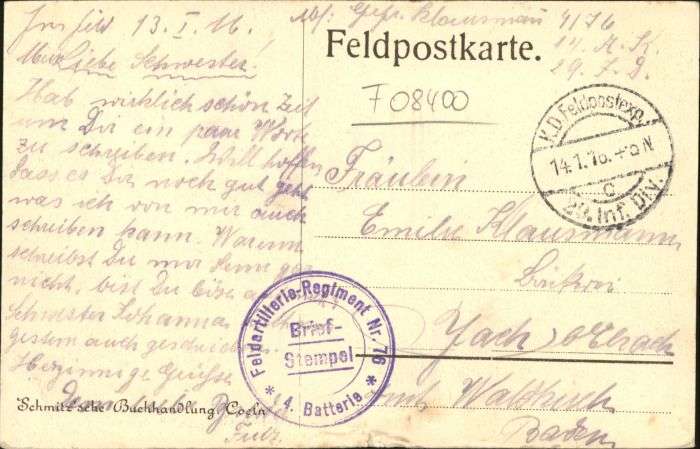 Im Feld 13.I.16.
Meine Liebe Schwester!
Hab wirklich schön Zeit
um Dir ein paar Worte
zu schreiben. Will hoffen
dass es Dir noch gut geht
was ich von mir auch
schreiben kann. Warum
schreibst Du mir denn gar
nicht, bist Du böse
Schwester Johanna
gestern auch geschrieben
Herzinnige Grüsse
Dein lieb Bruder
Fritz
Schmitz'sche Buchhandlung, Coeln
Abs: Gefr. Klausmann 4/76
14. A. K.
29. I. D.
Feldpostkarte.
F 08400
K.D. Feldpostexp.
14.1.16. 4-5 N
c
29. Inf. Div.
Fräulein
Emilie Klausmann
Yach b/Elzach
Amt Waldkirch
Baden
Feldartillerie-Regiment Nr. 76
Brief-
Stempel
* 4. Batterie *